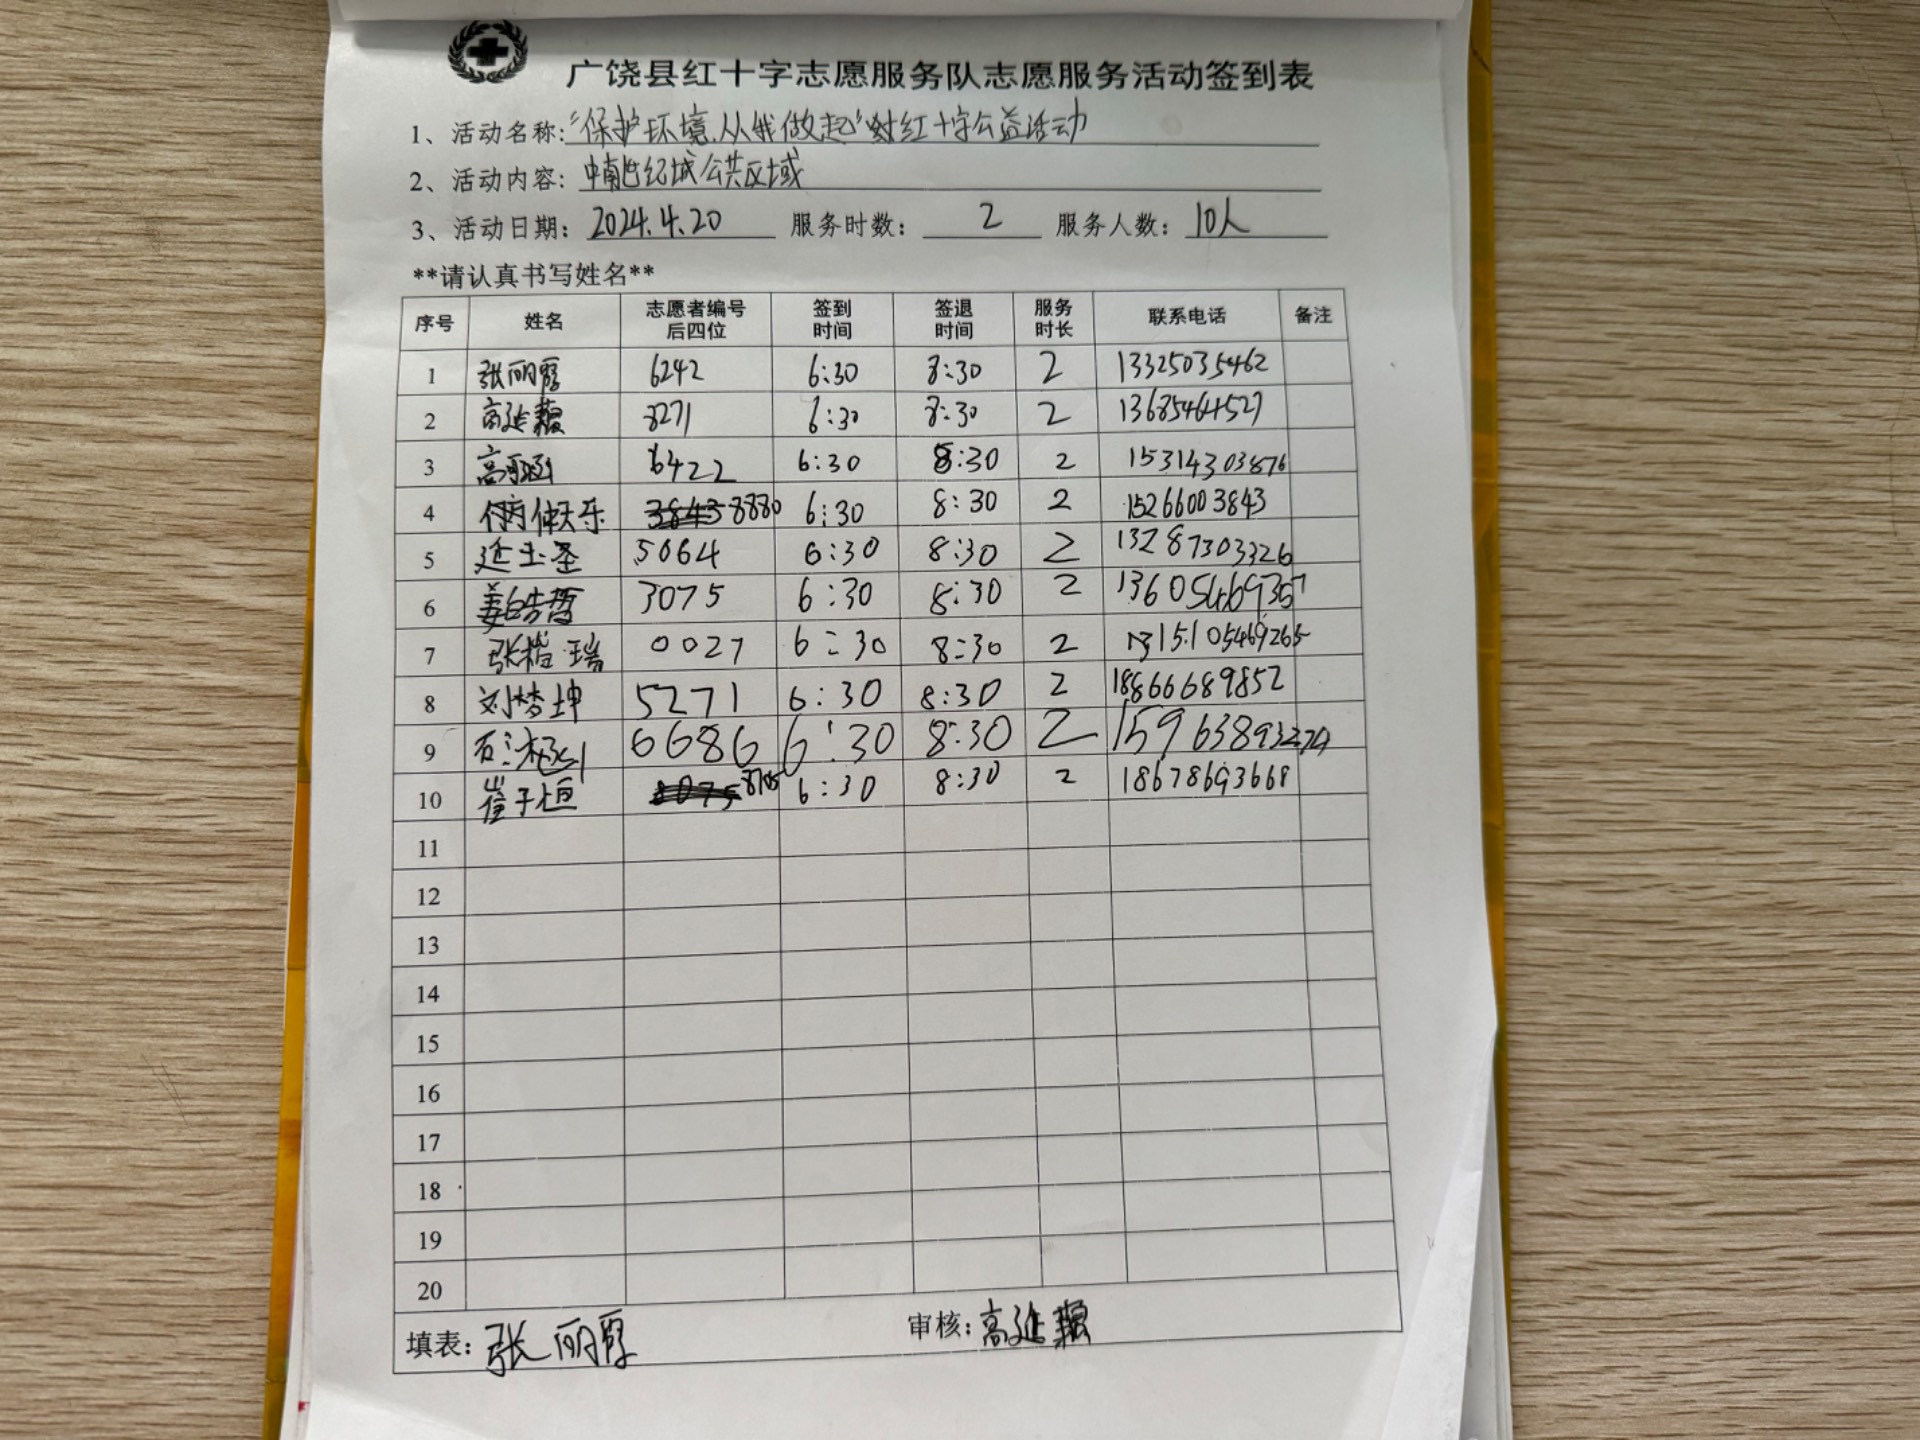 广饶县红十字志愿服务队志愿服务活动签到表
1、活动名称:"保护环境.从我做起"红十字公益活动
2、活动内容: 中南世纪城公共区域
3、活动日期: 2024.4.20 服务时数: 2 服务人数: 10人
**请认真书写姓名**
序号 姓名 志愿者编号后四位 签到时间 签退时间 服务时长 联系电话 备注
1 张丽霞 6242 6:30 8:30 2 13325035462
2 高延 8271 6:30 8:30 2
3 高 6422 6:30 8:30 2 15314303876
4 仲天乐 8880 6:30 8:30 2 15266003843
5 延玉圣 5064 6:30 8:30 2 13287303326
6 姜皓哲 3075 6:30 8:30 2
7 张楷瑞 0027 6:30 8:30 2
8 刘梦坤 5271 6:30 8:30 2 18866689852
9 石 6686 6:30 8:30 2
10 崔子恒 6:30 8:30 2 18678693668
11
12
13
14
15
16
17
18
19
20
填表: 张丽霞 审核: 高延